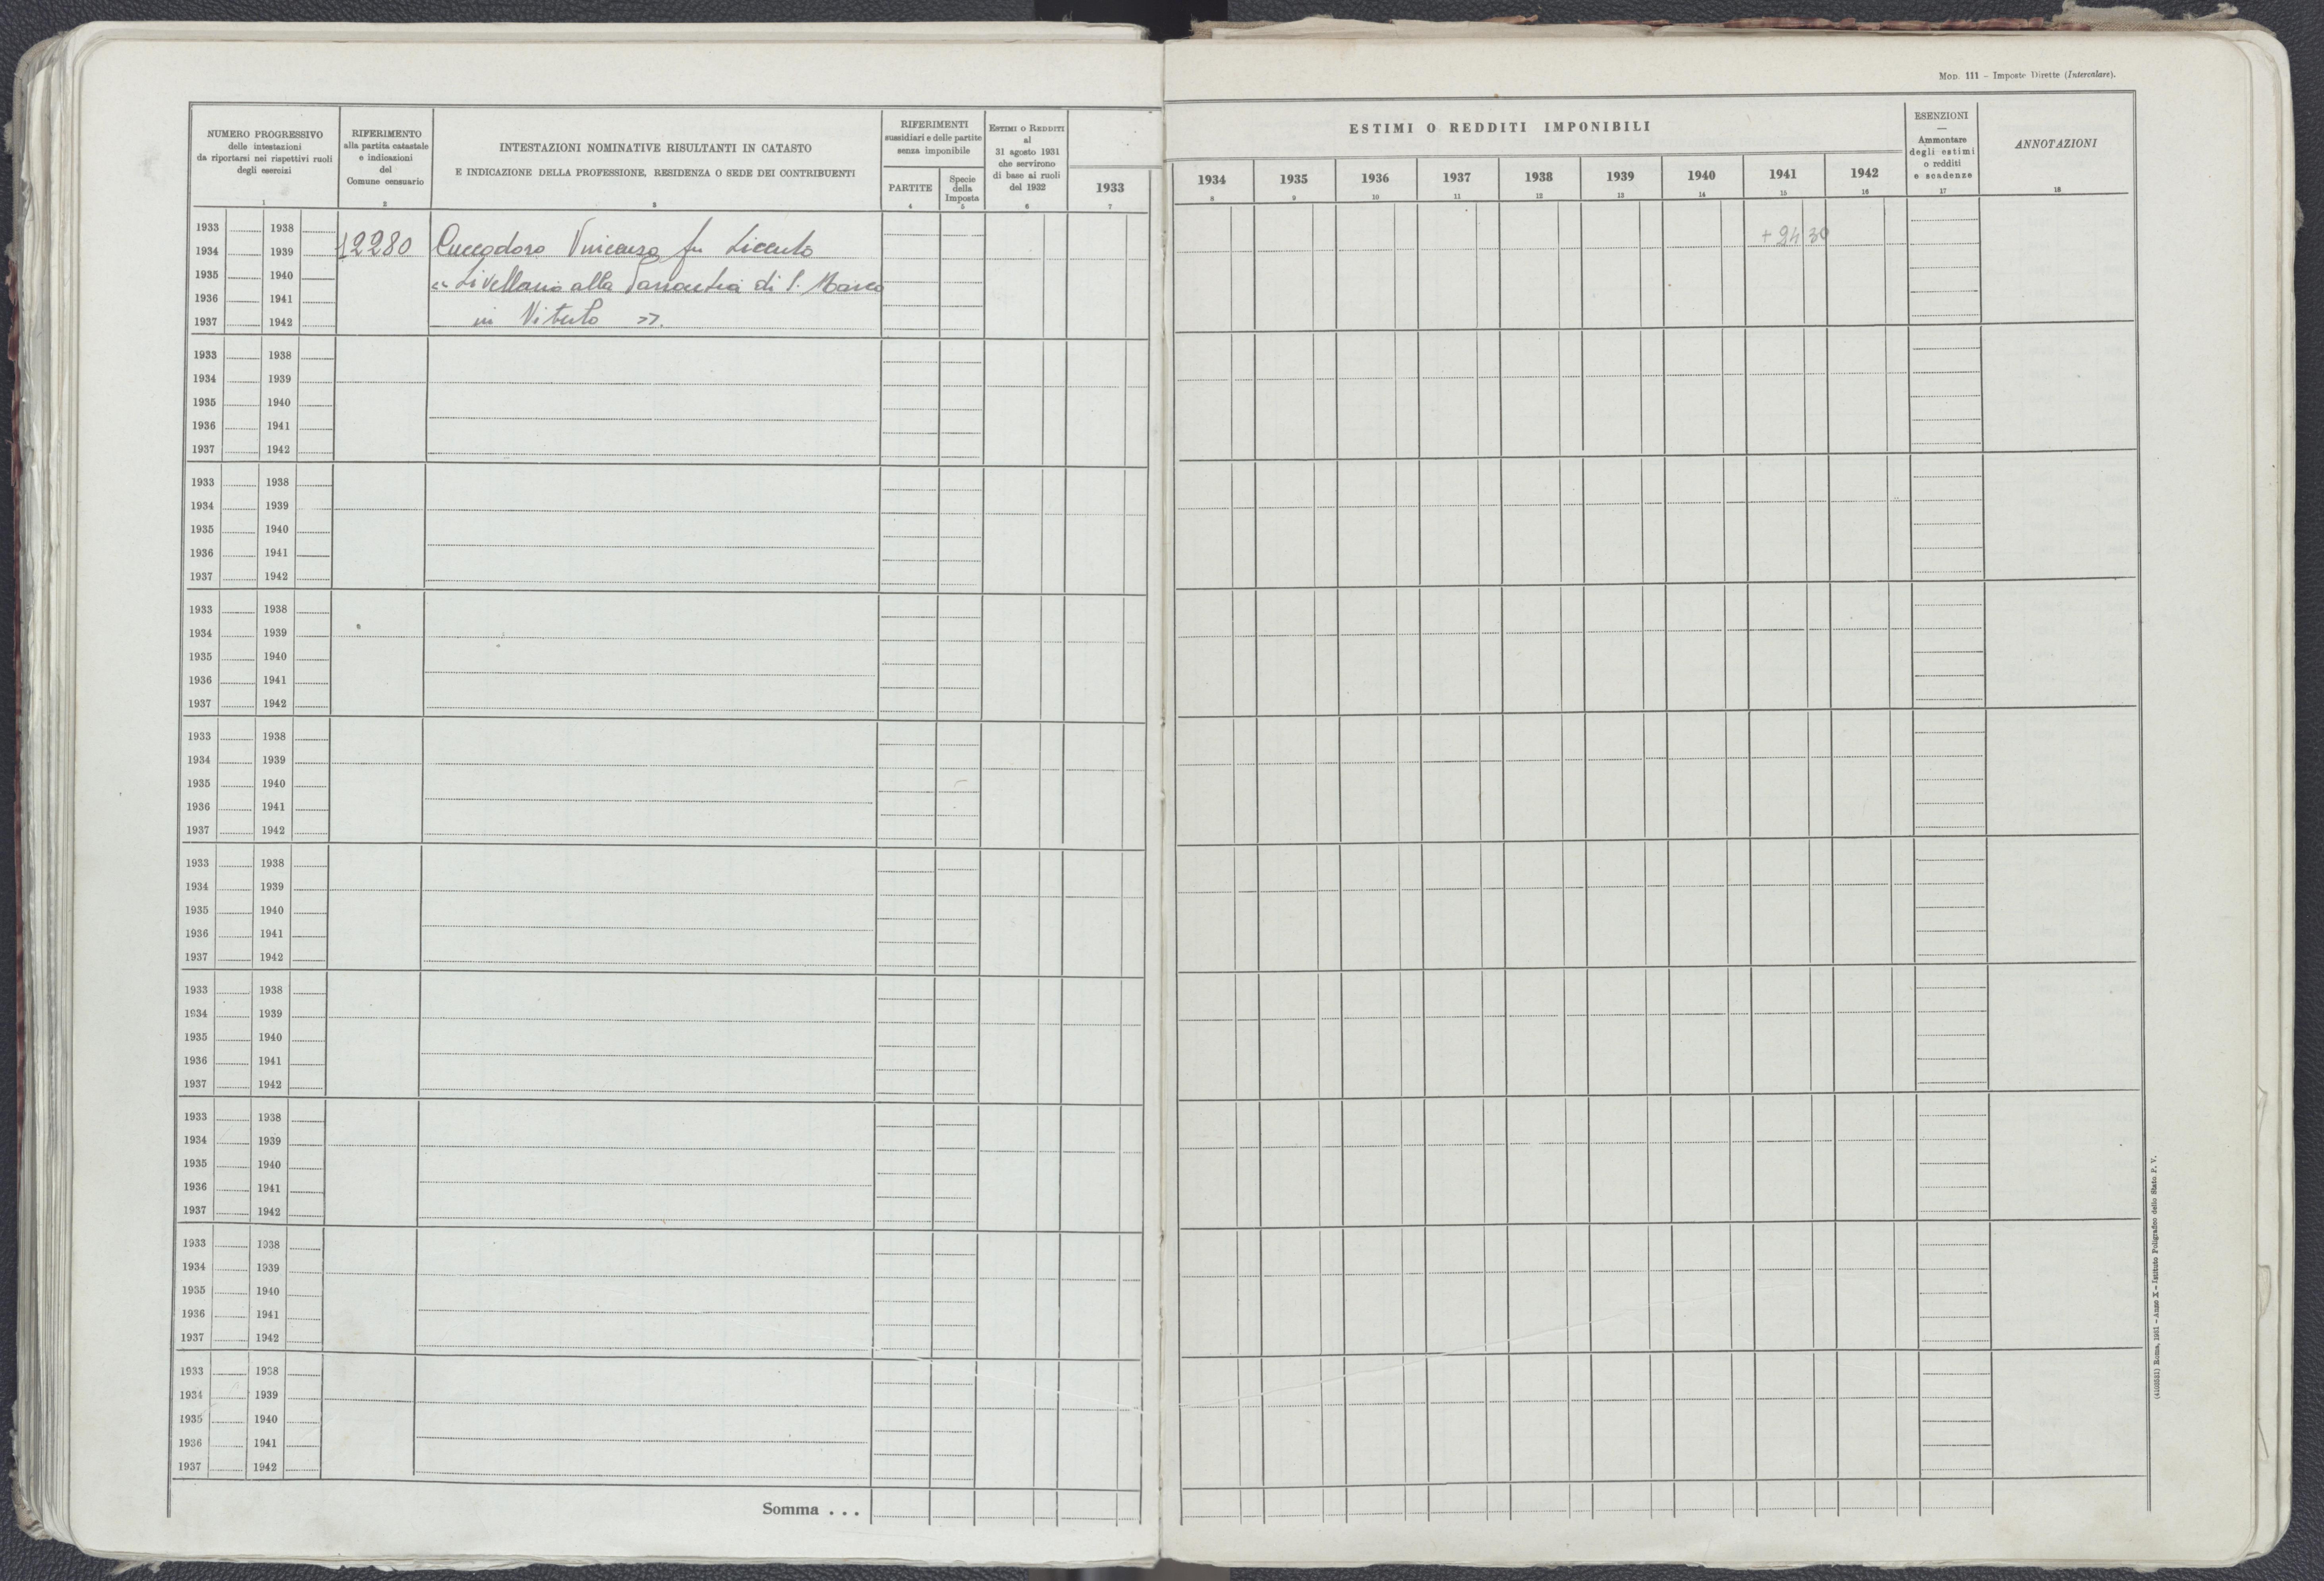 Mod. 111 – Imposte Dirette (Intercalare).
NUMERO PROGRESSIVO
delle intestazioni
da riportarsi nei rispettivi ruoli
degli esercizi
1
RIFERIMENTO
alla partita catastale
e indicazioni
del
Comune censuario
2
INTESTAZIONI NOMINATIVE RISULTANTI IN CATASTO
E INDICAZIONE DELLA PROFESSIONE, RESIDENZA O SEDE DEI CONTRIBUENTI
3
RIFERIMENTI
sussidiari e delle partite
senza imponibile
PARTITE
4
Specie
della
Imposta
5
Estimi o Redditi
al
31 agosto 1931
che servirono
di base ai ruoli
del 1932
6
1933
7
ESTIMI O REDDITI IMPONIBILI
1934 1935 1936 1937 1938 1939 1940 1941 1942
8 9 10 11 12 13 14 15 16
ESENZIONI
—
Ammontare
degli estimi
o redditi
e scadenze
17
ANNOTAZIONI
18
1933 1938
1934 1939 12280 Cuccodoro Vincenzo fu + 24 30
1935 1940 « Livellario alla di S. Marco
1936 1941
1937 1942 in »
1933 1938
1934 1939
1935 1940
1936 1941
1937 1942
1933 1938
1934 1939
1935 1940
1936 1941
1937 1942
1933 1938
1934 1939
1935 1940
1936 1941
1937 1942
1933 1938
1934 1939
1935 1940
1936 1941
1937 1942
1933 1938
1934 1939
1935 1940
1936 1941
1937 1942
1933 1938
1934 1939
1935 1940
1936 1941
1937 1942
1933 1938
1934 1939
1935 1940
1936 1941
1937 1942
1933 1938
1934 1939
1935 1940
1936 1941
1937 1942
1933 1938
1934 1939
1935 1940
1936 1941
1937 1942
Somma . . .
(4103531) Roma, 1931 – Anno X – Istituto Poligrafico dello Stato P. V.